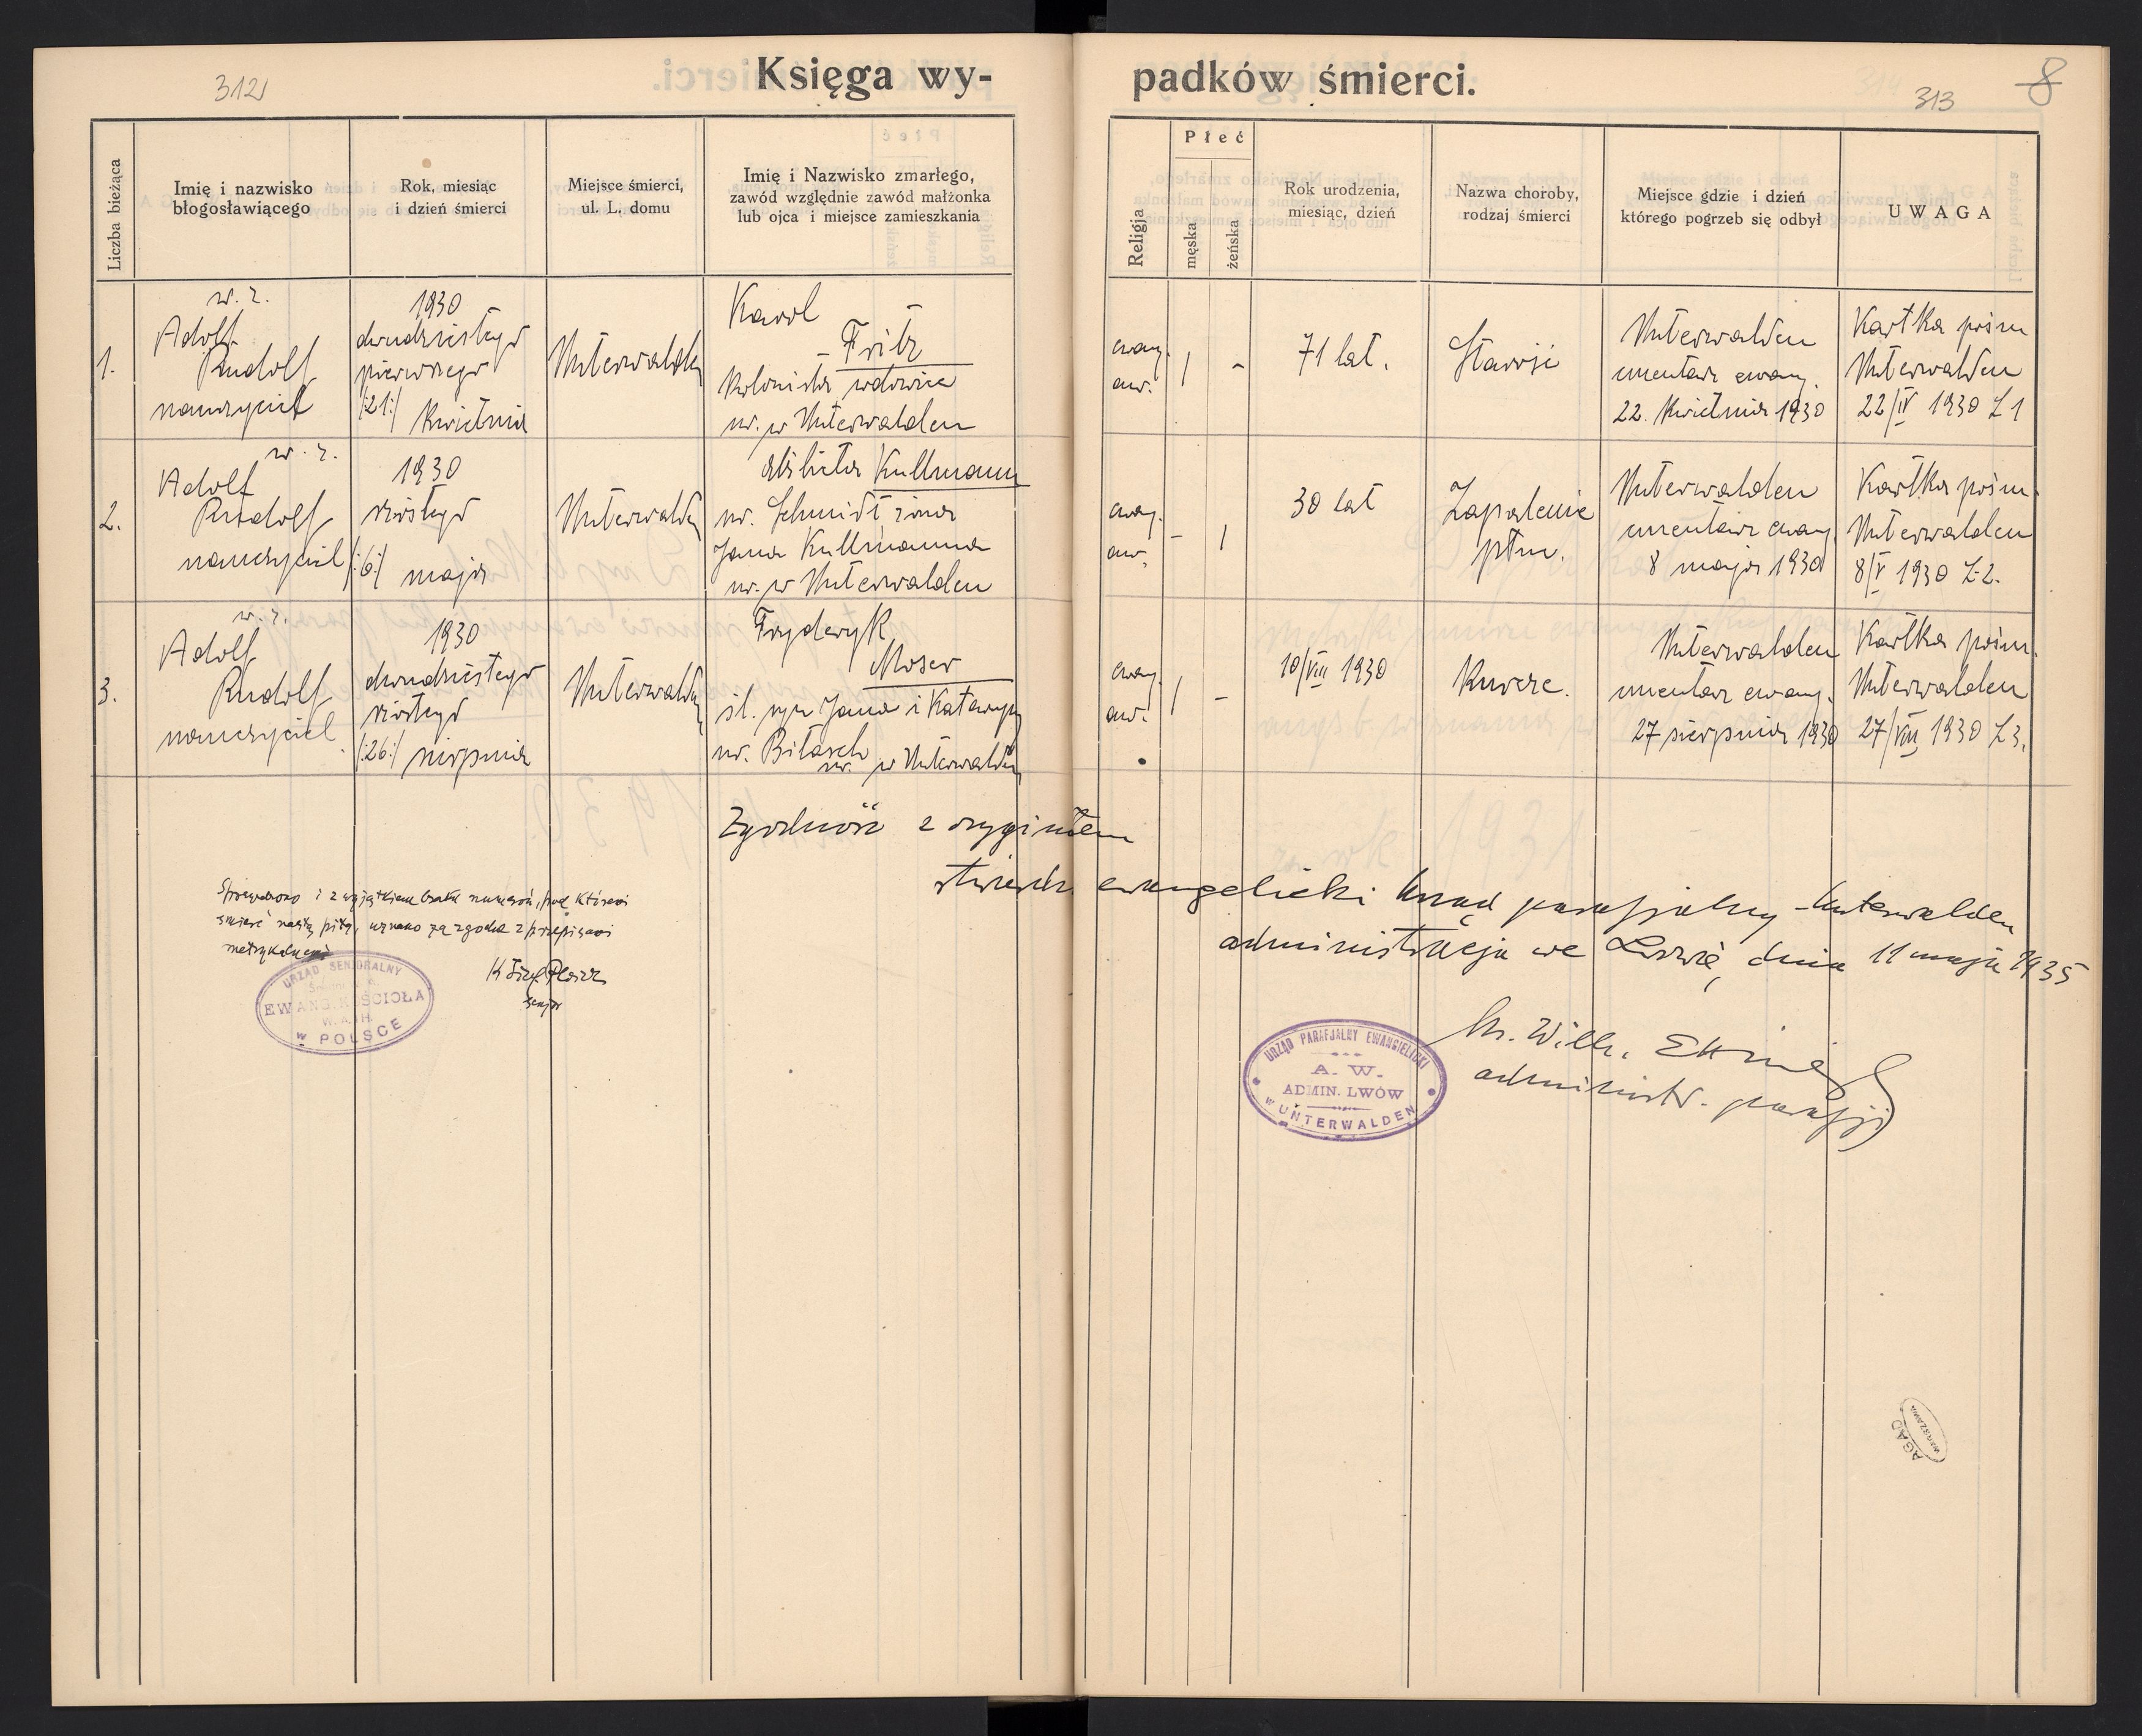 312
Księga wypadków śmierci.
313
8
Liczba bieżąca
Imię i nazwisko
błogosławiącego
Rok, miesiąc
i dzień śmierci
Miejsce śmierci,
ul. L. domu
Imię i Nazwisko zmarłego,
zawód względnie zawód małżonka
lub ojca i miejsce zamieszkania
Religja
Płeć
męska
żeńska
Rok urodzenia,
miesiąc, dzień
Nazwa choroby,
rodzaj śmierci
Miejsce gdzie i dzień
którego pogrzeb się odbył
UWAGA
1.
w. r.
Adolf
Rudolf
nauczyciel
1930
dwudziestego
pierwszego
/:21:/ kwietnia
Unterwalden
Karol
Fritz
kolonista, wdowiec
w Unterwalden
ewang.
aw.
/
-
71 lat.
Starość
Unterwalden
cmentarz ewang.
22. kwietnia 1930
Kartka pośm
Unterwalden
22/IV 1930 L 1
2.
w. r.
Adolf
Rudolf
nauczyciel
1930
szóstego
/:6:/ maja
Unterwalden
Elżbieta Kullmann
ur. Schmidt żona
Jana Kullmanna
w Unterwalden
ewang.
aw.
-
/
30 lat
Zapalenie
płuc.
Unterwalden
cmentarz ewang.
8 maja 1930
Kartka pośm.
Unterwalden
8/V 1930 L-2.
3.
w. r.
Adolf
Rudolf
nauczyciel.
1930
dwudziestego
szóstego
/:26:/ sierpnia
Unterwalden
Fryderyk
Moser
śl. syn Jana i Katarzyny
ur. Bitasch
w Unterwalden
ewang.
aw.
/
-
10/VIII 1930
Kurcze.
Unterwalden
cmentarz ewang.
27 sierpnia 1930
Kartka pośm.
Unterwalden
27/VIII 1930 L 3.
Zgodność z oryginałem
stwierdza ewangelicki Urząd parafjalny Unterwalden
administracja we Lwowie, dnia 11 maja 1935
Sprawdzono i z wyjątkiem braku numerów, pod którymi
śmierć nastąpiła, uznano za zgodne z przepisami
metrykalnymi
senjor
URZĄD SENJORALNY
EWANG. KOŚCIOŁA
w POLSCE
URZĄD PARAFJALNY EWANGIELICKI
A. W.
ADMIN. LWÓW
w UNTERWALDEN
Ks. Wilh.
administr. parafji
AGAD
WARSZAWA